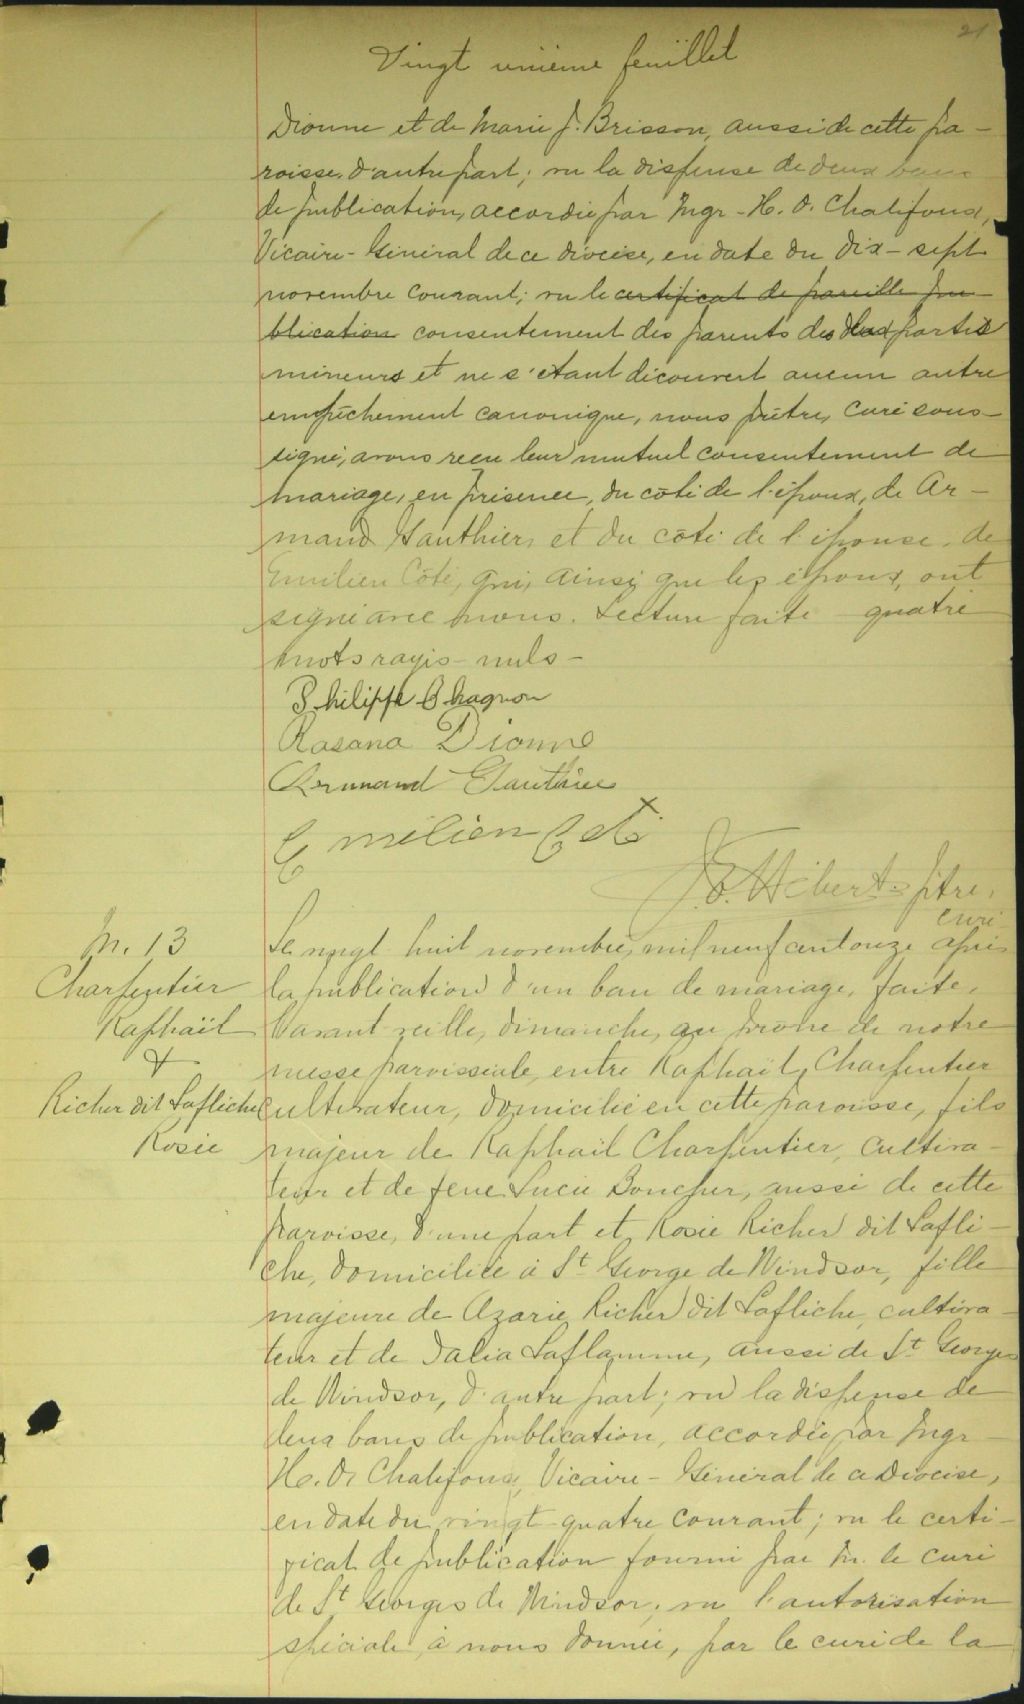 21
Vingt unième feuillet
Dionne et de Marie J. Brisson, aussi de cette pa-
roisse, d'autre part; vu la dispense de deux bans
de publication, accordée par Mgr. H. O. Chalifoux,
Vicaire-Général de ce diocèse, en date du dix-sept
novembre courant; vu le certificat de pareille pu-
blication consentement des parents des deux parties
mineurs et ne s'étant découvert aucun autre
empêchement canonique, nous prêtre, curé sous-
signé, avons reçu leur mutuel consentement de
mariage, en présence, du côté de l'époux, de Ar-
mand Gauthier, et du côté de l'épouse, de
Emilien Côté, qui, ainsi que les époux, ont
signé avec nous. Lecture faite quatre
mots rayés nuls-
Philippe Chagnon
Rosana Dionne
Armand Gauthier
Emilien Coté
J. E. Hébert ptre,
curé
M. 13
Charpentier
Raphaël
&
Richer dit Laflèche
Rosie
Le vingt huit novembre, mil neuf cent onze après
la publication d'un ban de mariage, faite,
l'avant veille, dimanche, au prône de notre
messe paroissiale, entre Raphaël Charpentier
cultivateur, domicilié en cette paroisse, fils
majeur de Raphaël Charpentier, cultiva-
teur et de feue Lucie Boucher, aussi de cette
paroisse, d'une part et Rosie Richer dit Laflè-
che, domiciliée à St George de Windsor, fille
majeure de Azarie Richer dit Laflèche, cultiva-
teur et de Dalia Laflamme, aussi de St Georges
de Windsor, d'autre part; vu la dispense de
deux bans de publication, accordée par Mgr
H. O. Chalifoux, Vicaire-Général de ce Diocèse,
en date du vingt-quatre courant; vu le certi-
ficat de publication fourni par M. le curé
de St Georges de Windsor; vu l'autorisation
spéciale, à nous donnée, par le curé de la